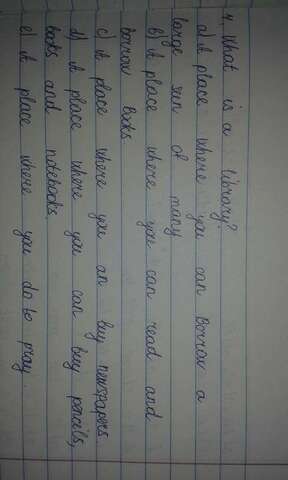 4. What is a library?
a) A place where you can Borrow a
large sum of many
b) A place where you can read and
borrow books
c) A place where you an buy newspapers.
d) A place where you can buy pencils,
books and notebooks.
e) A place where you do to pray